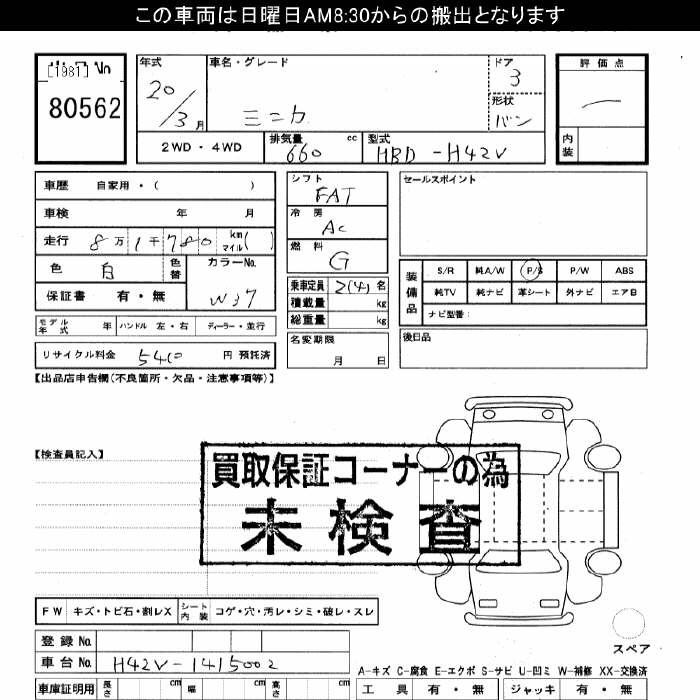 この車両は日曜日AM8:30からの搬出となります
[1981] No
80562
年式 20/3月
車名・グレード
ミニカ
ドア 3
形状 バン
評価点
内装
2WD・4WD
排気量 660 cc
型式 HBD-H42V
車歴 自家用・( )
車検 年 月
走行 8万1千780 km マイル( )
色 白 色替 カラーNo. W37
保証書 有・無
モデル年式 年 ハンドル 左・右 ディーラー・並行
リサイクル料金 5410 円 預託済
シフト FAT
冷房 AC
燃料 G
乗車定員 2(4)名
積載量 kg
総重量 kg
名変期限
月 日
セールスポイント
装備品
S/R 純A/W P/S P/W ABS
純TV 純ナビ 革シート 外ナビ エアB
ナビ型番:
後日品
【出品店申告欄(不良箇所・欠品・注意事項等)】
【検査員記入】
買取保証コーナーの為
未検査
FW キズ・トビ石・割レX シート内装 コゲ・穴・汚レ・シミ・破レ・スレ
スペア
登録No.
車台No. H42V-1415002
A-キズ C-腐食 E-エクボ S-サビ U-凹ミ W-補修 XX-交換済
車庫証明用 長さ cm 幅 cm 高さ cm
工具 有・無 ジャッキ 有・無